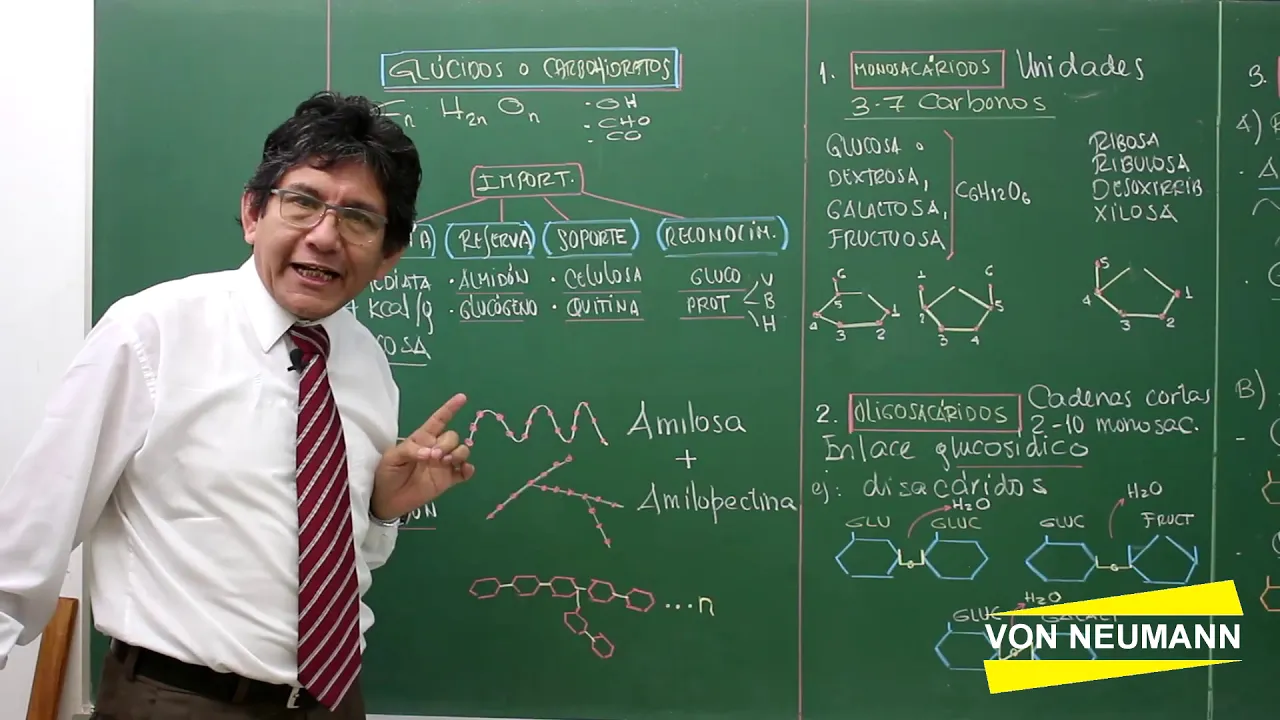 GLÚCIDOS o CARBOHIDRATOS
Cn H2n On
. OH
. CHO
. CO
IMPORT.
RESERVA
SOPORTE
RECONOCIM.
. ALMIDÓN
. GLUCÓGENO
. CELULOSA
. QUITINA
GLUCO
PROT
V
B
H
kcal/g
Amilosa
+
Amilopectina
...n
1. MONOSACÁRIDOS Unidades
3-7 Carbonos
GLUCOSA o
DEXTROSA,
GALACTOSA,
FRUCTUOSA
C6H12O6
RIBOSA
RIBULOSA
DESOXIRRIB
XILOSA
6
5
4
1
3
2
1
6
2
5
3
4
5
4
1
3
2
2. OLIGOSACÁRIDOS Cadenas cortas
2-10 monosac.
Enlace glucosídico
ej: disacáridos
H2O
GLU GLUC
H2O
GLUC FRUCT
H2O
GLUC GALACT
3.
A)
B)
VON NEUMANN